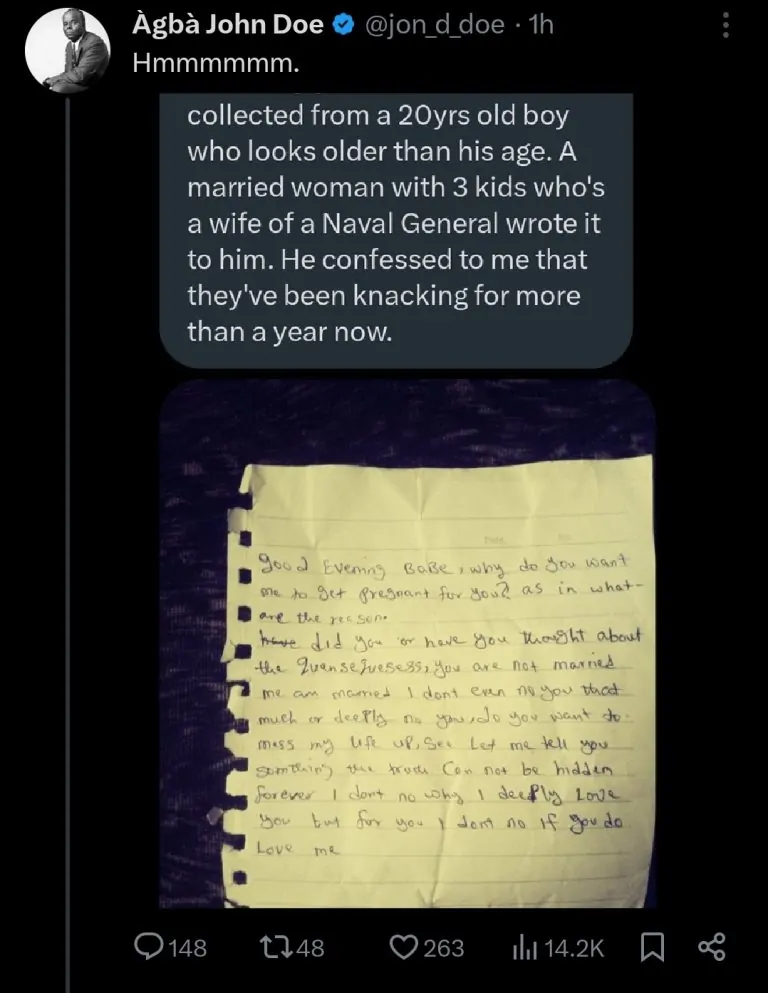 Àgbà John Doe @jon_d_doe · 1h
Hmmmmmm.
collected from a 20yrs old boy
who looks older than his age. A
married woman with 3 kids who's
a wife of a Naval General wrote it
to him. He confessed to me that
they've been knacking for more
than a year now.
good Evening BaBe, why do you want
me to get pregnant for you? as in what
are the reason.
have did you or have you thought about
the Quensequesess, you are not married
me am married I dont even no you that
much or deeply no you, do you want to
mess my life up, See Let me tell you
something the truth Can not be hidden
forever I dont no why I deeply Love
you but for you I dont no If you do
Love me
148 48 263 14.2K